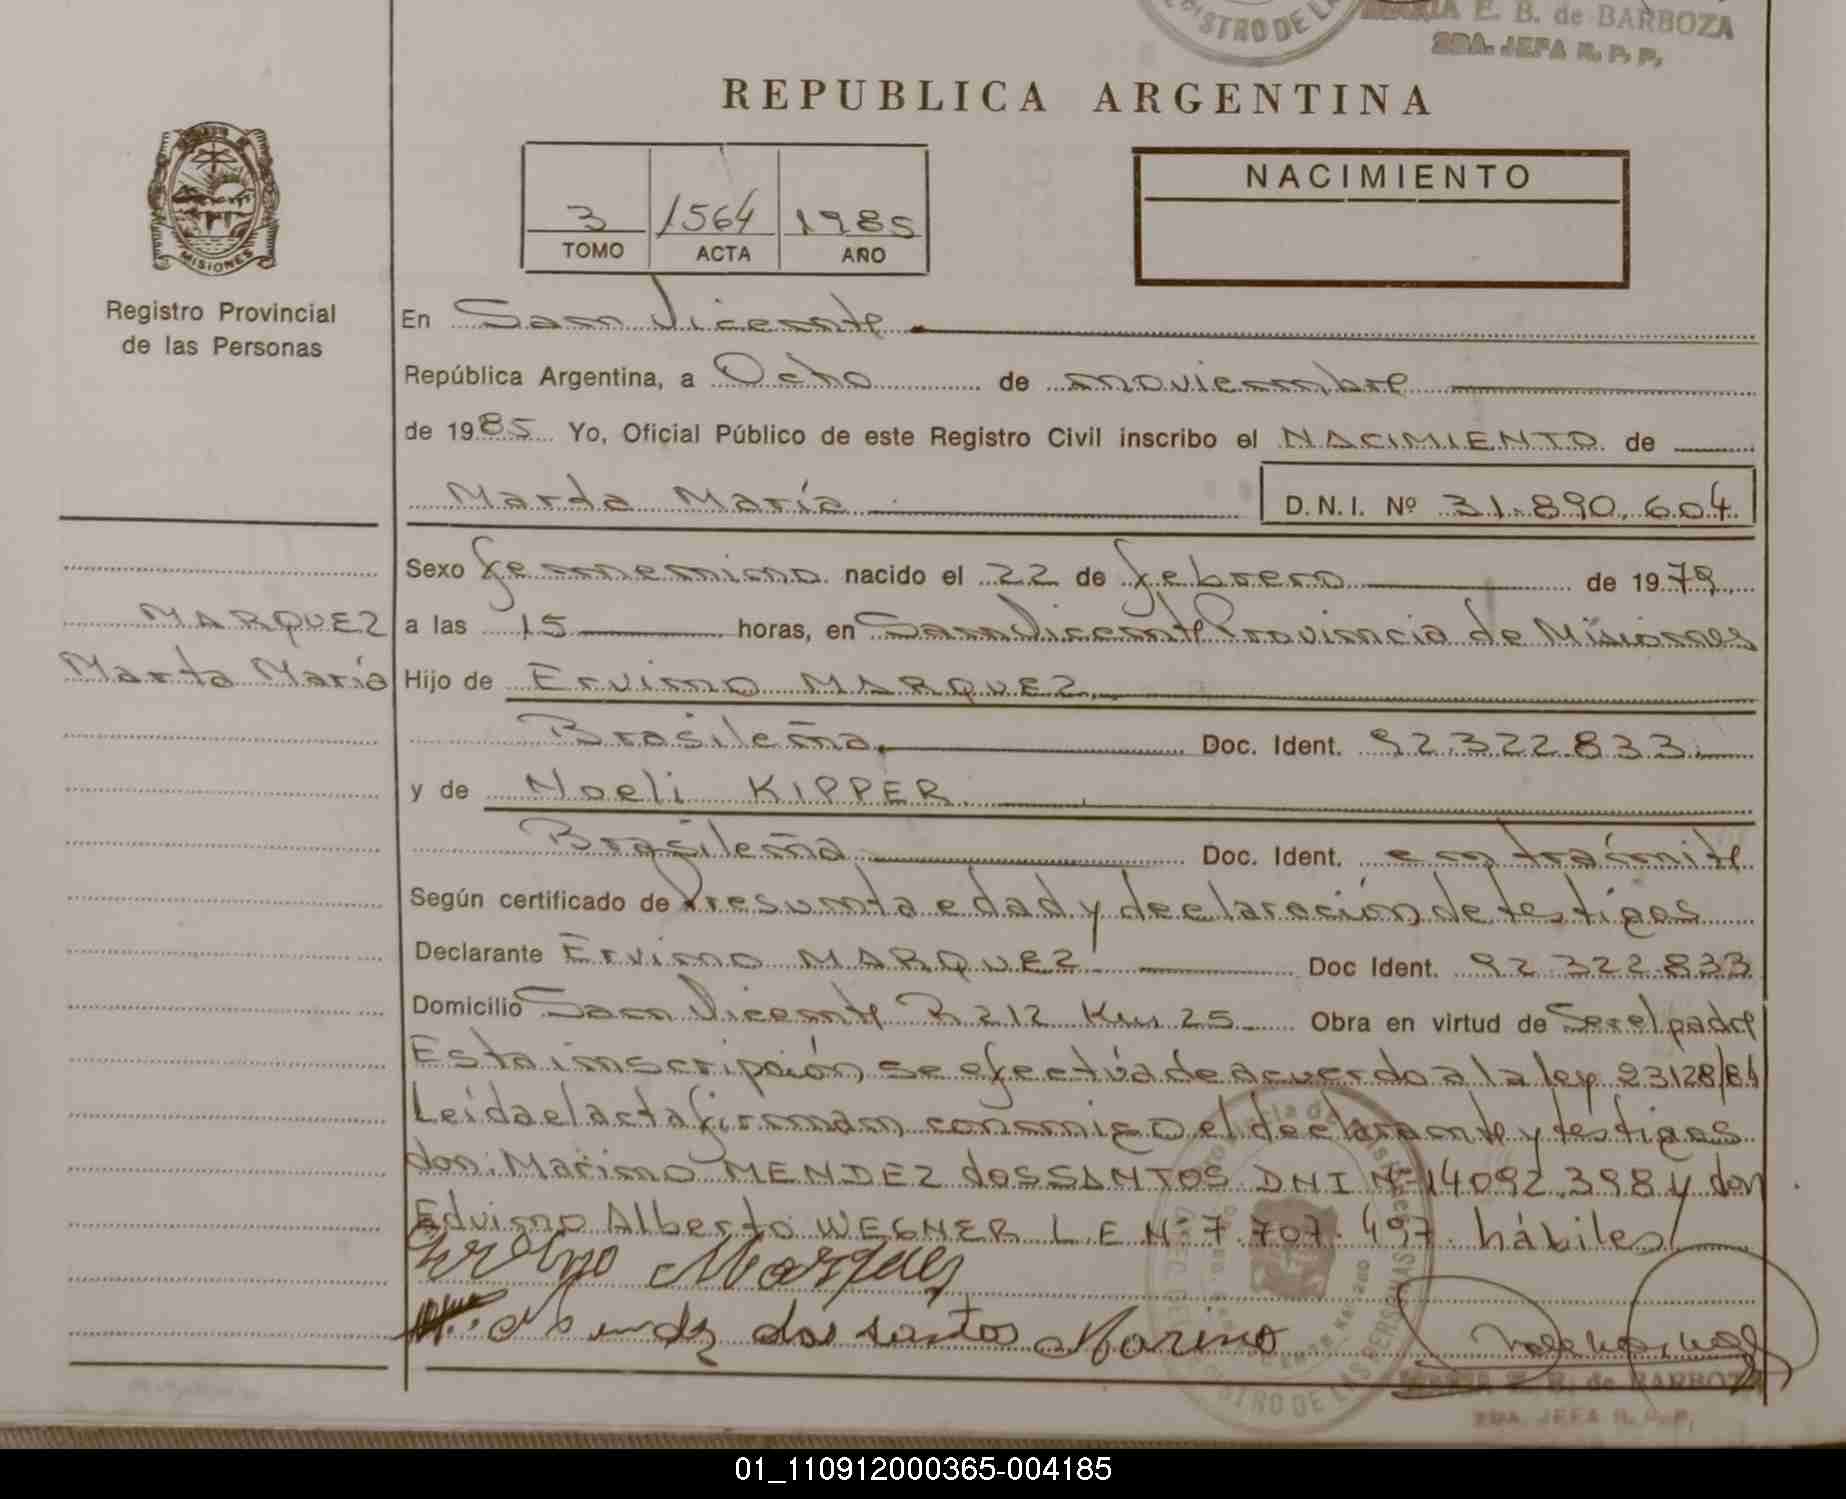 MARIA E. B. de BARBOZA
2DA. JEFA R. P. P.
REPUBLICA ARGENTINA
MISIONES
Registro Provincial
de las Personas
3 1564 1985
TOMO ACTA AÑO
NACIMIENTO
En San Vicente
República Argentina, a Ocho de noviembre
de 1985 Yo, Oficial Público de este Registro Civil inscribo el NACIMIENTO de
Marta María D.N.I. Nº 31.890.604
Sexo femenino nacido el 22 de febrero de 1979
MARQUEZ
Marta María
a las 15 horas, en San Vicente Provincia de Misiones
Hijo de Ervino MARQUEZ
Brasileña Doc. Ident. 92.322.833
y de Noeli KIPPER
Brasileña Doc. Ident. en trámite
Según certificado de Presunta edad y declaración de testigos
Declarante Ervino MARQUEZ Doc Ident. 92 322 833
Domicilio San Vicente R 212 Km 25 Obra en virtud de Ser el padre
Esta inscripción se efectúa de acuerdo a la ley 23128/84
Leída el acta firman conmigo el declarante y testigos
don: Marino MENDEZ dos SANTOS DNI Nº 14092.398 y don
Edvino Alberto WEGNER L.E Nº 7.707.497 hábiles
Ervino Marquez
Mendz dos santos Marino
MARIA E. B. de BARBOZA
2DA. JEFA R. P. P.
REGISTRO DE LAS PERSONAS
01_110912000365-004185